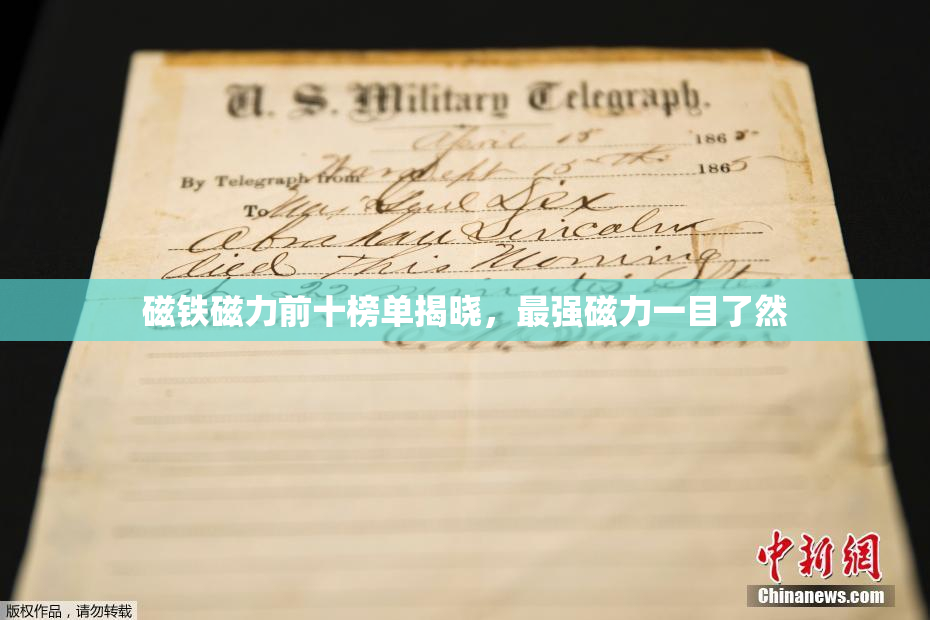 U. S. Military Telegraph.
April 15 1865
By Telegraph from War Dept 15th 1865
To Maj Genl Dix
Abraham Lincoln
died This Morning
22 minutes after
磁铁磁力前十榜单揭晓，最强磁力一目了然
E. M. Stanton
中新网
Chinanews.com
版权作品，请勿转载